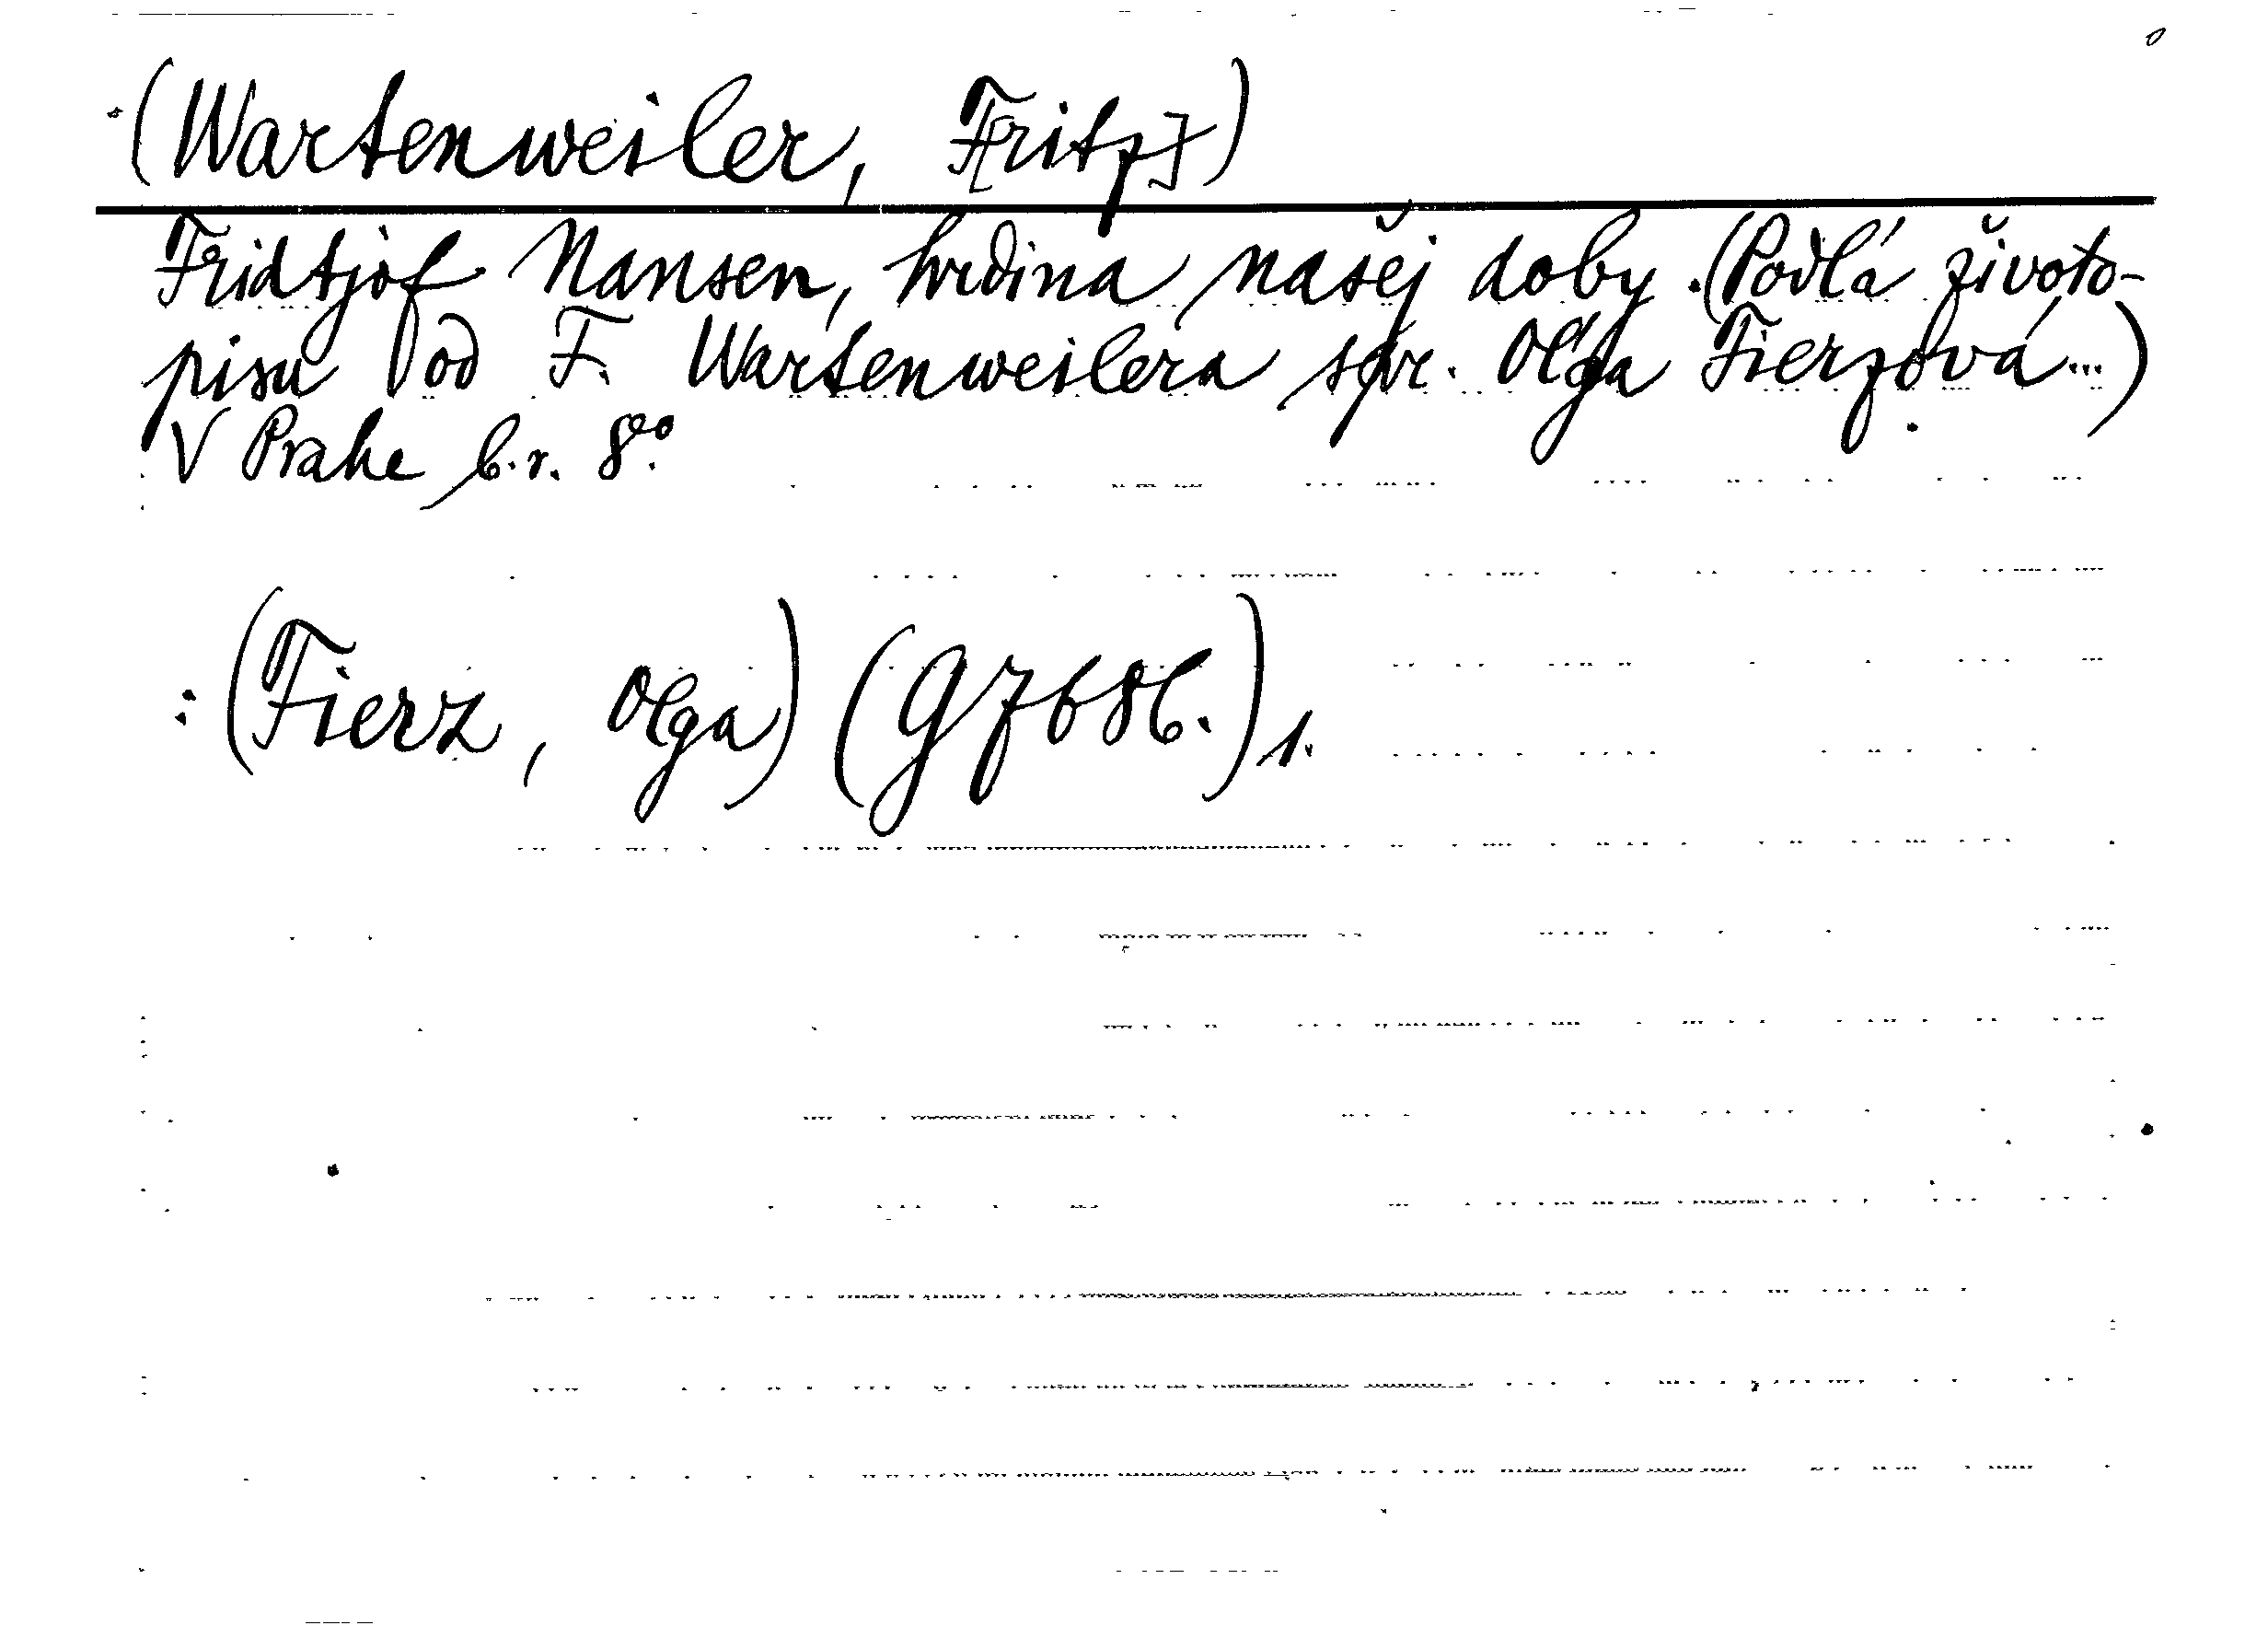 (Wartenweiler, F[ritz])
Fridtjof Nansen, hrdina našej doby. (Podľa životo-
pisu od F. Wartenweilera spr. Oľga Fierzová...)
V Prahe b.r. 8°.
: (Fierz, Olga) (G 7686.) 1.